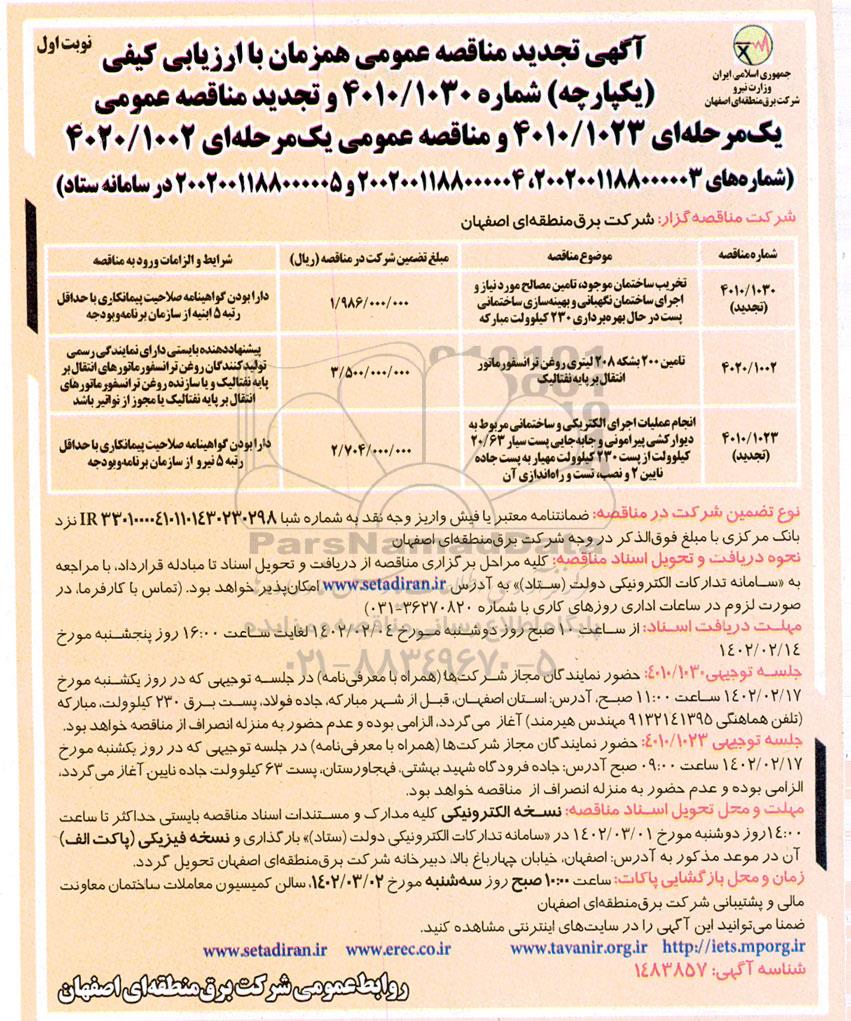 نوبت اول
جمهوری اسلامی ایران
وزارت نیرو
شرکت برق منطقه‌ای اصفهان
آگهی تجدید مناقصه عمومی همزمان با ارزیابی کیفی
(یکپارچه) شماره ۴۰۱۰/۱۰۳۰ و تجدید مناقصه عمومی
یک‌مرحله‌ای ۴۰۱۰/۱۰۲۳ و مناقصه عمومی یک‌مرحله‌ای ۴۰۲۰/۱۰۰۲
(شماره‌های ۲۰۰۲۰۰۱۱۸۸۰۰۰۰۰۳، ۲۰۰۲۰۰۱۱۸۸۰۰۰۰۰۴ و ۲۰۰۲۰۰۱۱۸۸۰۰۰۰۰۵ در سامانه ستاد)
شرکت مناقصه‌گزار: شرکت برق منطقه‌ای اصفهان
شماره مناقصه
موضوع مناقصه
مبلغ تضمین شرکت در مناقصه (ریال)
شرایط و الزامات ورود به مناقصه
۴۰۱۰/۱۰۳۰
(تجدید)
تخریب ساختمان موجود، تامین مصالح مورد نیاز و
اجرای ساختمان نگهبانی و بهینه‌سازی ساختمانی
پست در حال بهره‌برداری ۲۳۰ کیلوولت مبارکه
۱/۹۸۶/۰۰۰/۰۰۰
دارا بودن گواهینامه صلاحیت پیمانکاری با حداقل
رتبه ۵ ابنیه از سازمان برنامه‌وبودجه
۴۰۲۰/۱۰۰۲
تامین ۲۰۰ بشکه ۲۰۸ لیتری روغن ترانسفورماتور
انتقال بر پایه نفتالیک
۳/۵۰۰/۰۰۰/۰۰۰
پیشنهاددهنده بایستی دارای نمایندگی رسمی
تولیدکنندگان روغن ترانسفورماتورهای انتقال بر
پایه نفتالیک و یا سازنده روغن ترانسفورماتورهای
انتقال بر پایه نفتالیک یا مجوز از توانیر باشد
۴۰۱۰/۱۰۲۳
(تجدید)
انجام عملیات اجرای الکتریکی و ساختمانی مربوط به
دیوارکشی پیرامونی و جابه‌جایی پست سیار ۲۰/۶۳
کیلوولت از پست ۲۳۰ کیلوولت مهیار به پست جاده
نایین ۲ و نصب، تست و راه‌اندازی آن
۲/۷۰۴/۰۰۰/۰۰۰
دارا بودن گواهینامه صلاحیت پیمانکاری با حداقل
رتبه ۵ نیرو از سازمان برنامه‌وبودجه
نوع تضمین شرکت در مناقصه: ضمانتنامه معتبر یا فیش واریز وجه نقد به شماره شبا IR ۳۳۰۱۰۰۰۰۴۱۰۱۱۰۱۴۳۰۲۳۰۲۹۸ نزد
بانک مرکزی با مبلغ فوق‌الذکر در وجه شرکت برق منطقه‌ای اصفهان
نحوه دریافت و تحویل اسناد مناقصه: کلیه مراحل برگزاری مناقصه از دریافت و تحویل اسناد تا مبادله قرارداد، با مراجعه
به «سامانه تدارکات الکترونیکی دولت (ستاد)» به آدرس www.setadiran.ir امکان‌پذیر خواهد بود. (تماس با کارفرما، در
صورت لزوم در ساعات اداری روزهای کاری با شماره ۳۶۲۷۰۸۲۰-۰۳۱)
مهلت دریافت اسناد: از ساعت ۱۰ صبح روز دوشنبه مورخ ۱۴۰۲/۰۲/۰۴ لغایت ساعت ۱۶:۰۰ روز پنجشنبه مورخ
۱۴۰۲/۰۲/۱۴
جلسه توجیهی۴۰۱۰/۱۰۳۰: حضور نمایندگان مجاز شرکت‌ها (همراه با معرفی‌نامه) در جلسه توجیهی که در روز یکشنبه مورخ
۱۴۰۲/۰۲/۱۷ ساعت ۱۱:۰۰ صبح، آدرس: استان اصفهان، قبل از شهر مبارکه، جاده فولاد، پست برق ۲۳۰ کیلوولت، مبارکه
(تلفن هماهنگی ۹۱۳۲۱۴۱۳۹۵ مهندس هیرمند) آغاز می‌گردد، الزامی بوده و عدم حضور به منزله انصراف از مناقصه خواهد بود.
جلسه توجیهی ۴۰۱۰/۱۰۲۳: حضور نمایندگان مجاز شرکت‌ها (همراه با معرفی‌نامه) در جلسه توجیهی که در روز یکشنبه مورخ
۱۴۰۲/۰۲/۱۷ ساعت ۰۹:۰۰ صبح آدرس: جاده فرودگاه شهید بهشتی، فهجاورستان، پست ۶۳ کیلوولت جاده نایین آغاز می‌گردد،
الزامی بوده و عدم حضور به منزله انصراف از مناقصه خواهد بود.
مهلت و محل تحویل اسناد مناقصه: نسخه الکترونیکی کلیه مدارک و مستندات اسناد مناقصه بایستی حداکثر تا ساعت
۱۴:۰۰روز دوشنبه مورخ ۱۴۰۲/۰۳/۰۱ در «سامانه تدارکات الکترونیکی دولت (ستاد)» بارگذاری و نسخه فیزیکی (پاکت الف)
آن در موعد مذکور به آدرس: اصفهان، خیابان چهارباغ بالا، دبیرخانه شرکت برق منطقه‌ای اصفهان تحویل گردد.
زمان و محل بازگشایی پاکات: ساعت ۱۰:۰۰ صبح روز سه‌شنبه مورخ ۱۴۰۲/۰۳/۰۲، سالن کمیسیون معاملات ساختمان معاونت
مالی و پشتیبانی شرکت برق منطقه‌ای اصفهان
ضمنا می‌توانید این آگهی را در سایت‌های اینترنتی مشاهده کنید.
www.setadiran.ir www.erec.co.ir www.tavanir.org.ir http://iets.mporg.ir
شناسه آگهی: ۱۴۸۳۸۵۷
روابط عمومی شرکت برق منطقه‌ای اصفهان
ParsNamadData
پایگاه اطلاع رسانی مناقصه و مزایده
۰۲۱-۸۸۳۴۹۶۷۰-۵